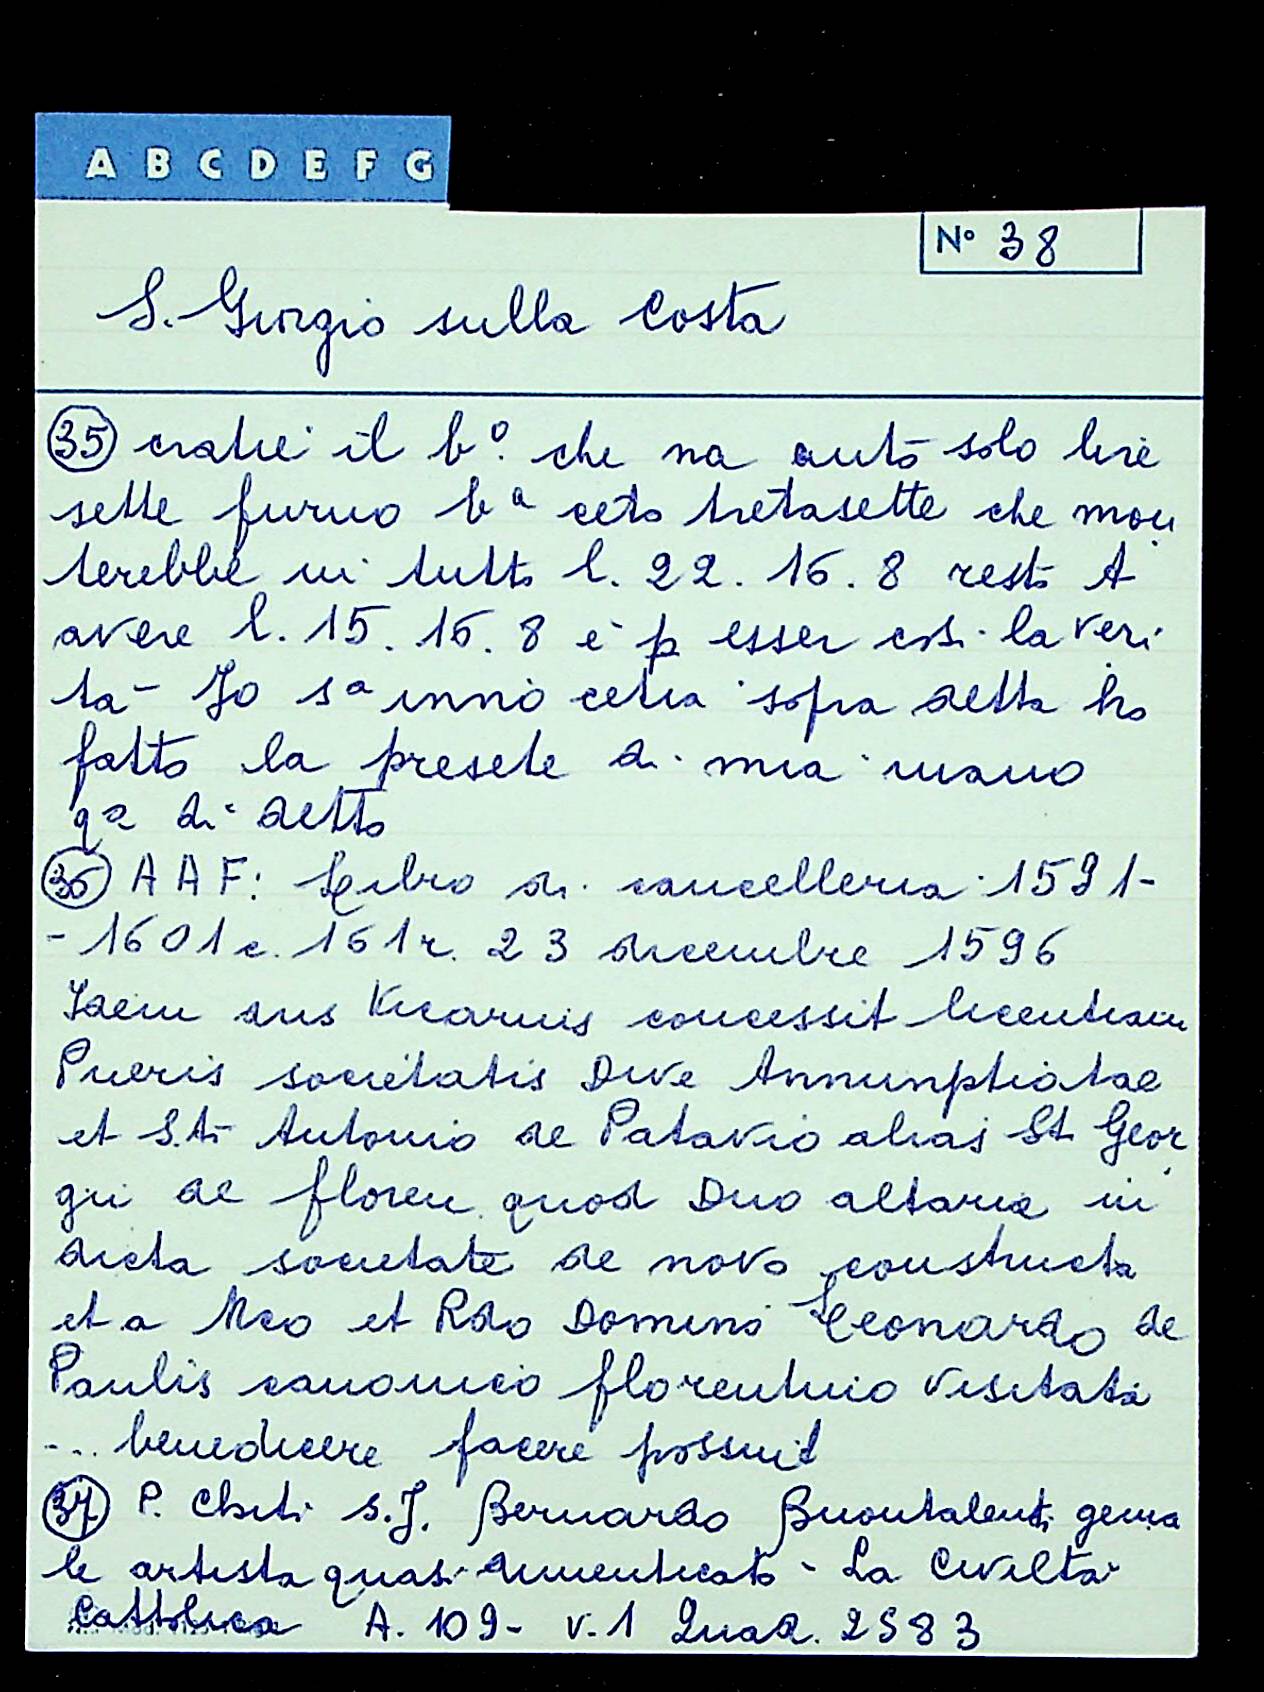 A B C D E F G
Nº 38
S. Giorgio sulla Costa
35 cratie il bº. che na auto solo lire
sette furno bª ceto tretasette che mon
terebbe in tutto l. 22. 16. 8 resto A
avere l. 15. 16. 8 e p esser cosi la veri
ta - Jo sª innocetia sopra detta ho
fatto la presete di mia mano
qº di detto
36 A A F: Libro di cancelleria 1591-
- 1601 c. 161r. 23 dicembre 1596
Idem dns Vicarius concessit licentiam
Pueris societatis Dive Annumptiatae
et S.ti Antonio de Patavio alias St. Geor
gii de floren. quod Duo altaria in
dicta societate de novo constructa
et a Mco et Rdo Domino Leonardo de
Paulis canonico florentino visitata
... benedicere facere possuit
37 P. Chiti S.J. Bernardo Buontalenti genia
le artista quasi dimenticato - La Civiltà
Cattolica A. 109 - v. 1 Quad. 2583